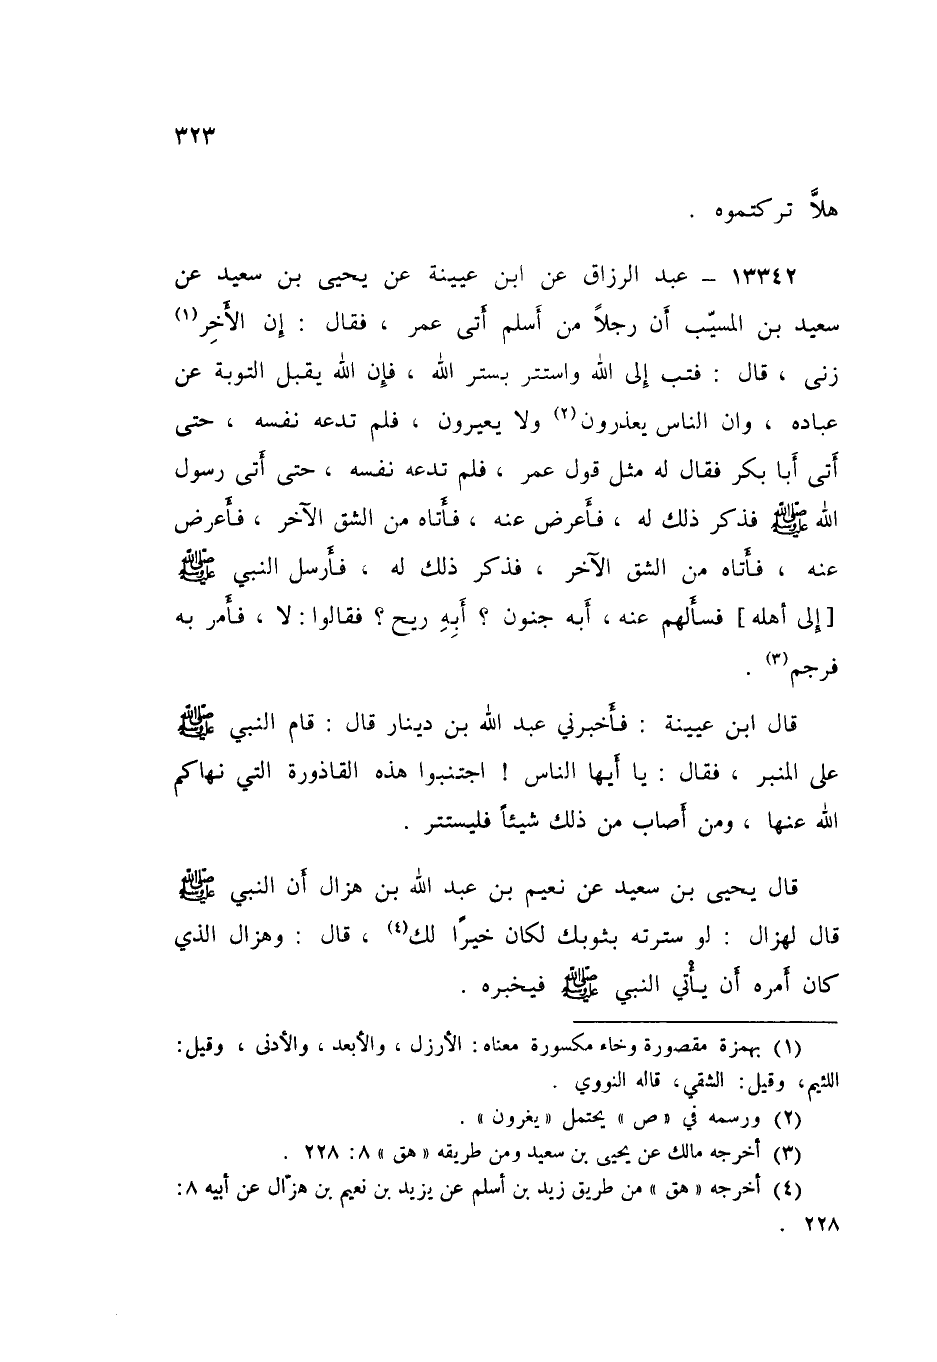 ٣٢٣
هلاَّ تركتموه .
١٣٣٤٢ – عبد الرزاق عن ابن عيينة عن يحيى بن سعيد عن
سعيد بن المسيّب أن رجلاً من أسلم أتى عمر ، فقال : إن الأَخِر(١)
زنى ، قال : فتب إلى الله واستتر بستر الله ، فإن الله يقبل التوبة عن
عباده ، وان الناس يعذرون(٢) ولا يعيرون ، فلم تدعه نفسه ، حتى
أتى أبا بكر فقال له مثل قول عمر ، فلم تدعه نفسه ، حتى أتى رسول
الله ﷺ فذكر ذلك له ، فأعرض عنه ، فأتاه من الشق الآخر ، فأعرض
عنه ، فأتاه من الشق الآخر ، فذكر ذلك له ، فأرسل النبي ﷺ
[إلى أهله] فسألهم عنه ، أبه جنون ؟ أبِهِ ريح ؟ فقالوا : لا ، فأمر به
فرجم(٣) .
قال ابن عيينة : فأخبرني عبد الله بن دينار قال : قام النبي ﷺ
على المنبر ، فقال : يا أيها الناس ! اجتنبوا هذه القاذورة التي نهاكم
الله عنها ، ومن أصاب من ذلك شيئاً فليستتر .
قال يحيى بن سعيد عن نعيم بن عبد الله بن هزال أن النبي ﷺ
قال لهزال : لو سترته بثوبك لكان خيرًا لك(٤) ، قال : وهزال الذي
كان أمره أن يأتي النبي ﷺ فيخبره .
(١) بهمزة مقصورة وخاء مكسورة معناه : الأرزل ، والأبعد ، والأدنى ، وقيل :
اللئيم ، وقيل : الشقي ، قاله النووي .
(٢) ورسمه في « ص » يحتمل « يغرون » .
(٣) أخرجه مالك عن يحيى بن سعيد ومن طريقه « هق » ٨ : ٢٢٨ .
(٤) أخرجه « هق » من طريق زيد بن أسلم عن يزيد بن نعيم بن هزّال عن أبيه ٨ :
٢٢٨ .